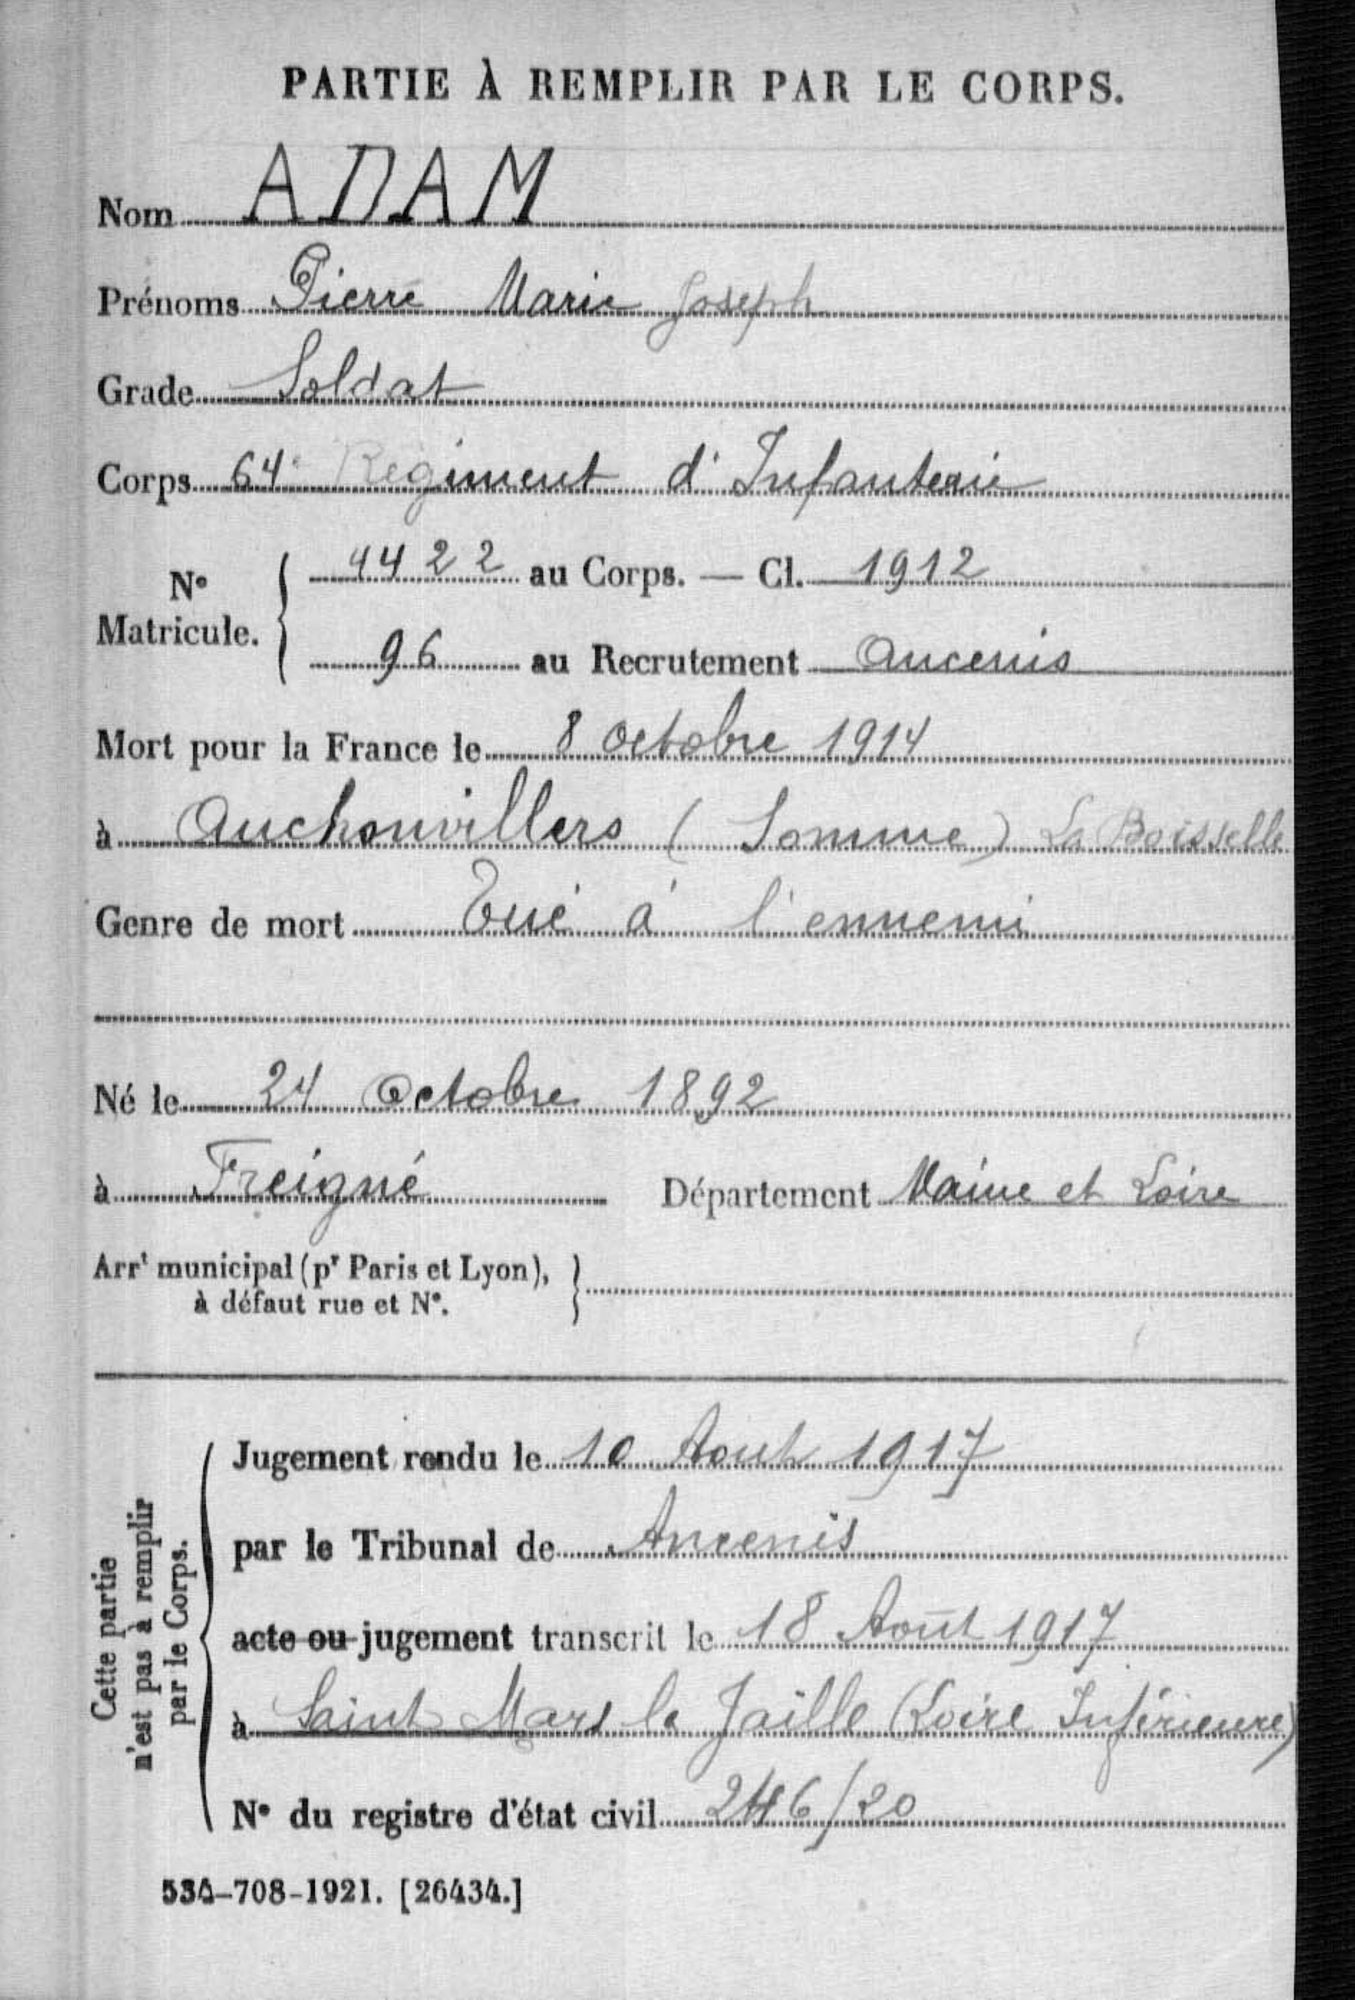 PARTIE À REMPLIR PAR LE CORPS.
Nom ADAM
Prénoms Pierre Marie Joseph
Grade Soldat
Corps 64e Régiment d'Infanterie
No Matricule. 4422 au Corps. — Cl. 1912
96 au Recrutement Ancenis
Mort pour la France le 8 octobre 1914
à Auchonvillers (Somme) La Boisselle
Genre de mort Tué à l'ennemi
Né le 24 Octobre 1892
à Freigné Département Maine et Loire
Arrt municipal (pr Paris et Lyon),
à défaut rue et No.
Cette partie
n'est pas à remplir
par le Corps.
Jugement rendu le 10 Août 1917
par le Tribunal de Ancenis
acte ou jugement transcrit le 18 Août 1917
à Saint Mars la Jaille (Loire Inférieure)
No du registre d'état civil 246/20
534-708-1921. [26434.]